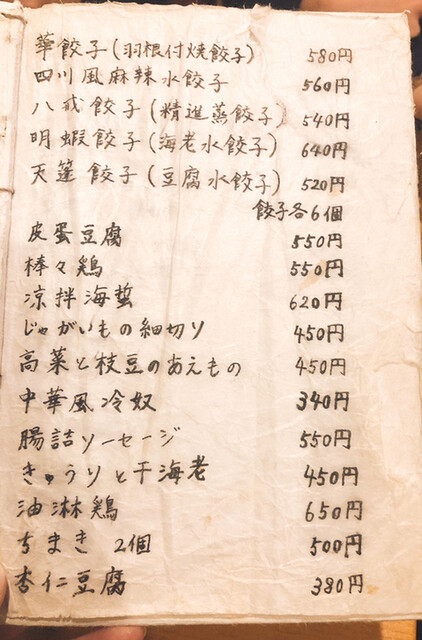 華餃子(羽根付焼餃子) 580円
四川風麻辣水餃子 560円
八戒餃子(精進蒸餃子) 540円
明蝦餃子(海老水餃子) 640円
天蓬餃子(豆腐水餃子) 520円
餃子各6個
皮蛋豆腐 550円
棒々鶏 550円
凉拌海蜇 620円
じゃがいもの細切り 450円
高菜と枝豆のあえもの 450円
中華風冷奴 340円
腸詰ソーセージ 550円
きゅうりと干海老 450円
油淋鶏 650円
ちまき 2個 500円
杏仁豆腐 380円